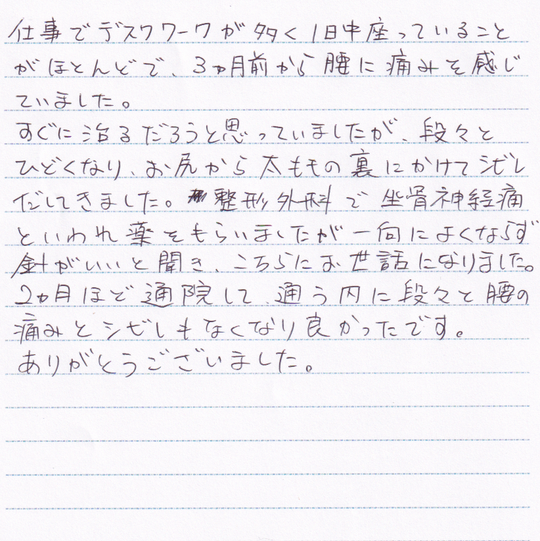 仕事でデスクワークが多く1日中座っていること
がほとんどで、3ヵ月前から腰に痛みを感じ
ていました。
すぐに治るだろうと思っていましたが、段々と
ひどくなり、お尻から太ももの裏にかけてシビレ
だしてきました。整形外科で坐骨神経痛
といわれ薬をもらいましたが一向によくならず
針がいいと聞き、こちらにお世話になりました。
2ヵ月ほど通院して、通う内に段々と腰の
痛みとシビレもなくなり良かったです。
ありがとうございました。